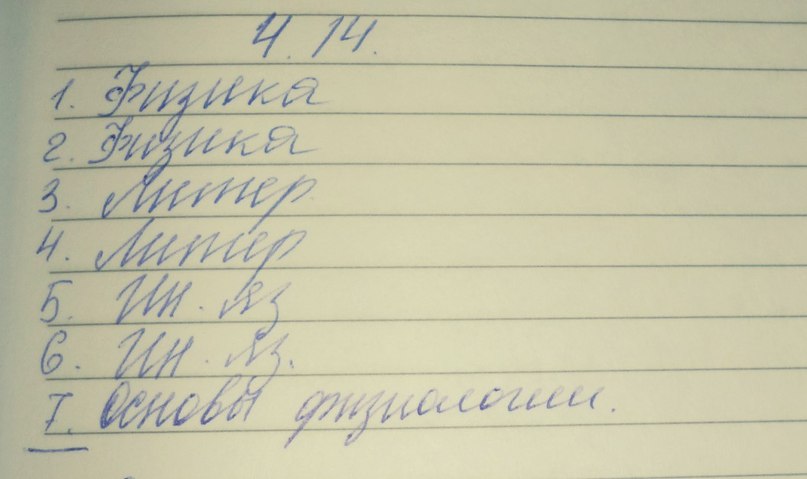 Ч. 14.
1. Физика
2. Физика
3. Литер
4. Литер
5. Ин. яз
6. Ин. яз.
7. Основы физиологии.